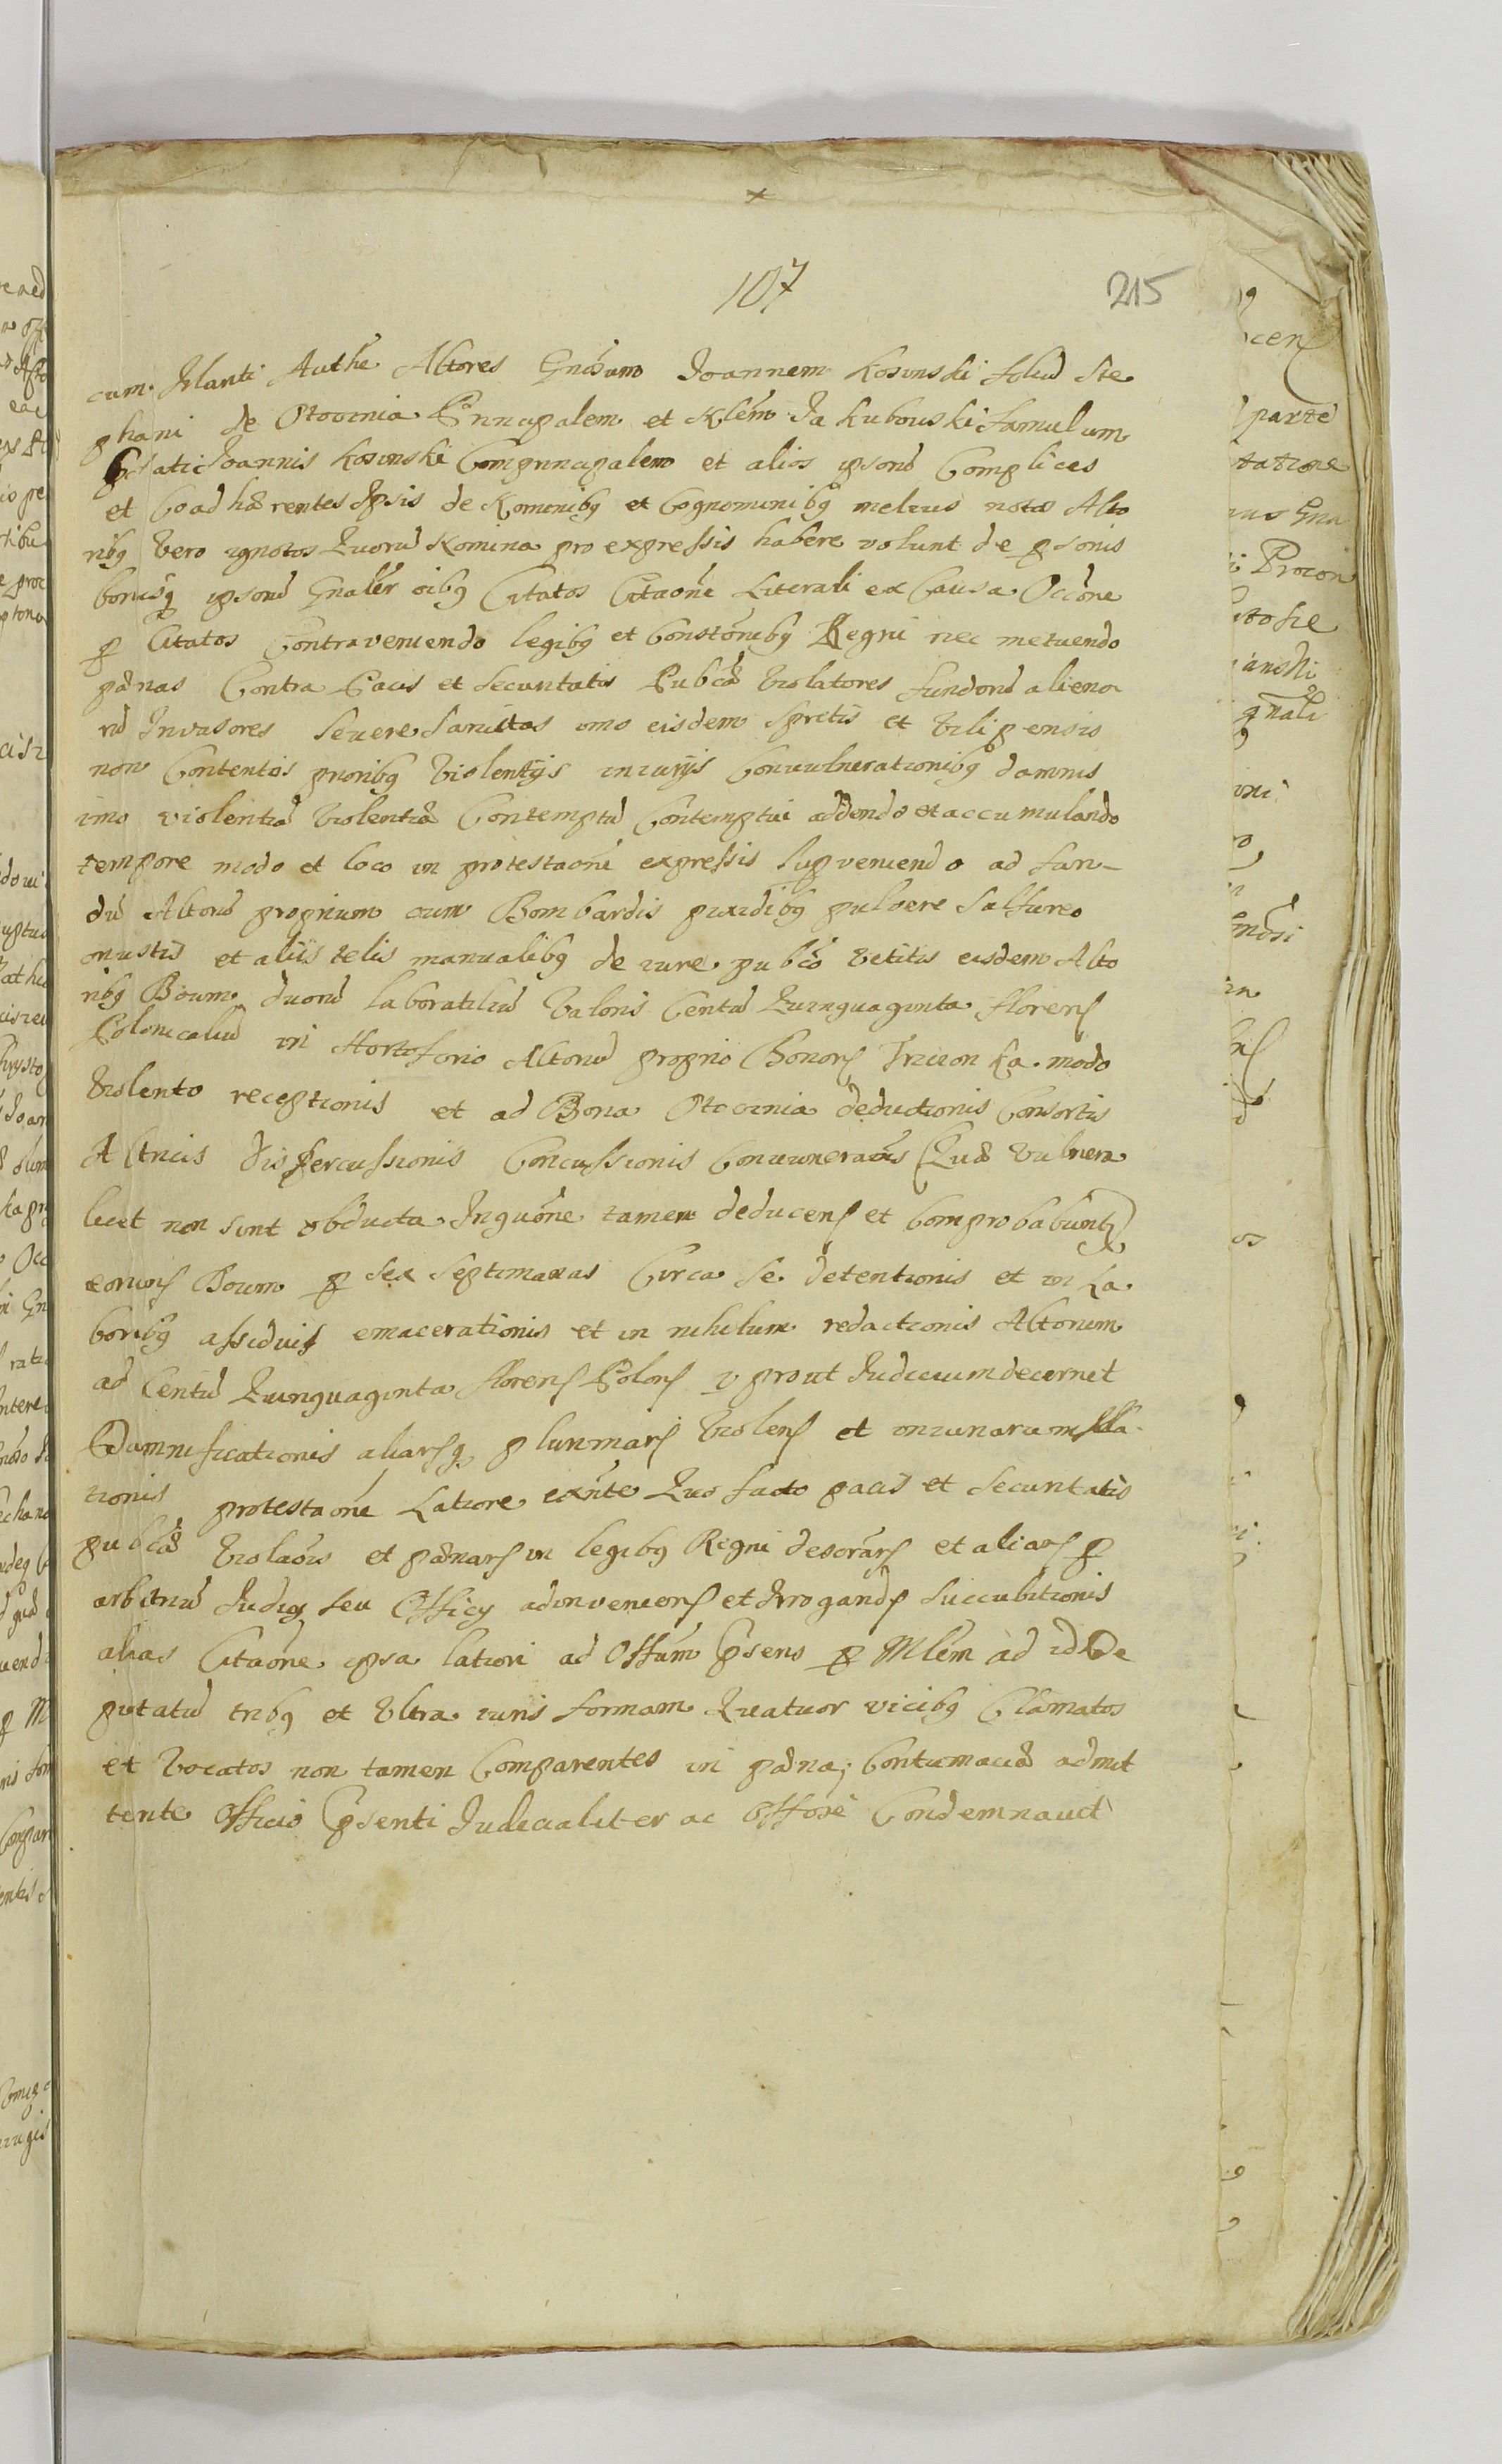 107
215
cum Mariti Authē Actores Gnōsum Joannem Kosinski filiū Ste
phani de Otocznia Prīncipalem et Nlēm Jakubowski famulum
Citati Joannis Kosinski Comprincipalem et alios ipsorū Complices
et Coadhærentes Ipsis de Nominibꝫ et Cognominibꝫ melius notos Acto
ribꝫ vero ignotos Quorū Nomina pro expressis habere volunt de psonis
bonisqꝫ ipsorū Gnālēr oībꝫ Citatos Citaōne Literali ex Causa Occōne
p Citatos Contraveniendo legibꝫ et Constōnibꝫ Regni nec metuendo
pænas Contra Pacis et securitatis Pubcæ violatores fundorū alieno
rū Invasores Severe Sancitas imo eisdem spretis et vilipensis
non Contentos prioribꝫ violentijs iniurijs Convulnerationibꝫ damnis
imo violentiā violentiæ Contemptū Contemptui addendo et accumulando
tempore modo et loco in protestaōne expressis supveniendo ad fun-
dū Actorū proprium cum Bombardis pixidibꝫ pulvere sulfureo
onustis et aliis telis manualibꝫ de iure pubcō vetitis eisdem Acto
ribꝫ Boum duorū laboratiliū valoris Centū Quinquaginta floren
Polonicaliū in Hortiforio Actorū proprio Bonor Trzcionka modo
violento receptionis et ad Bona Otocznia deductionis Consortis
Actricis dispercussionis Concussionis Convulneraōnis (Quæ vulnera
licet non sunt obducta Inquōne tamen deducen et comprobabuntr)
eorum Boum p sex septimanas Circa se detentionis et in La
boribꝫ assiduis emacerationis et in nihilum redactionis Actorum
ad Centū Quinquaginta floren Polon v prout Judicium decernet
Damnificationis aliarqꝫ plurimar violen et iniuriarum Illa
tionis protestaōne Latiore exnte Quo facto pacis et securitatis
pubcæ violaōnis et pænar in legibꝫ Regni descrar et aliar p
arbitriū Judicij seu Officij adinvenien et Irrogand succubitionis
alias Citaōne ipsa latiori ad Offūm psens p Mlēm ad id De
putatū tribꝫ et Ultra iuris formam Quatuor vicibꝫ Clamatos
et vocatos non tamen Comparentes in pæna Contumaciæ admit
tente Officio psenti Judicialiter ac Offōse Condemnavit